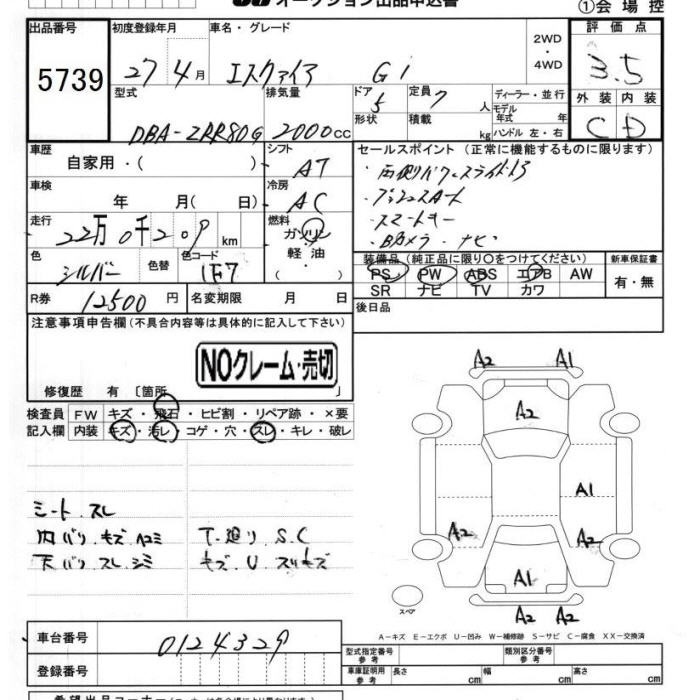 オークション出品申込書
①会場控
出品番号 5739
初度登録年月 27年4月
車名・グレード エスクァイア Gi
2WD・4WD
評価点 3.5
外装 C 内装 D
型式 DBA-ZRR80G
排気量 2000cc
ドア形状 5
定員 7人
積載 kg
ディーラー・並行
モデル年式 年
ハンドル 左・右
車歴 自家用・( )
シフト AT
車検 年 月( 日)
冷房 AC
走行 22万0千209km
燃料 ガソリン・軽油( )
色 シルバー 色替
色コード 1F7
R券 12500円
名変期限 月 日
セールスポイント(正常に機能するものに限ります)
・両側パワースライドドア
・プッシュスタート
・スマートキー
・Bカメラ・ナビ
装備品(純正品に限り○をつけてください)
PS PW ABS エアB AW
SR ナビ TV カワ
新車保証書 有・無
後日品
注意事項申告欄(不具合内容等は具体的に記入して下さい)
NOクレーム・売切
修復歴 有 〔箇所 〕
検査員記入欄
FW キズ・飛石・ヒビ割・リペア跡・×要
内装 キズ・汚レ・コゲ・穴・スレ・キレ・破レ
シート、スレ
内バリ、キズ、ヘコミ
天バリ、スレ、シミ
下廻り、S、C
キズ、U、スリキズ
A2 A1
A2
A1
A2 A2
A1
A2 A2
スペア
A-キズ E-エクボ U-凹み W-補修跡 S-サビ C-腐食 XX-交換済
車台番号 0124329
登録番号
型式指定番号 参考
類別区分番号 参考
車庫証明用 参考 長さ cm 幅 cm 高さ cm